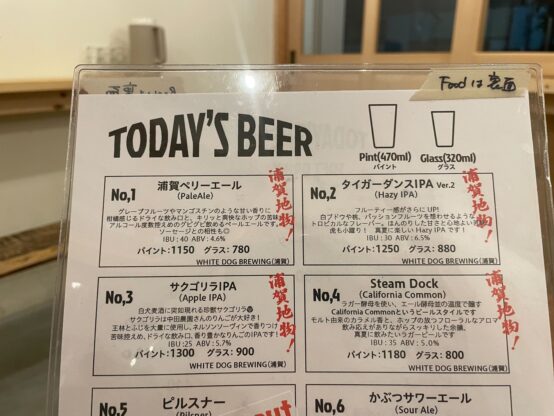 Food は裏面
TODAY'S BEER
Pint(470ml)
パイント
Glass(320ml)
グラス
No,1
浦賀ペリーエール
(PaleAle)
浦賀地物!
グレープフルーツやマンゴスチンのような甘い香りに
柑橘感じるドライな飲み口と、キリッと爽快なホップの苦味
アルコール度数控えめのグビグビ飲めるペールエールです。
ソーセージとの相性も◎
IBU : 40 ABV : 4.6%
パイント:1150 グラス: 780
WHITE DOG BREWING(浦賀)
No,2
タイガーダンスIPA Ver.2
(Hazy IPA)
浦賀地物!
フルーティー感がさらにUP!
白ブドウや桃、パッションフルーツを想わせるような
トロピカルなフレーバー。ほんのりした甘さと心地よい苦味
虎も小躍り! 真夏に楽しい Hazy IPA です!
IBU : 30 ABV : 6.5%
パイント:1250 グラス: 880
WHITE DOG BREWING(浦賀)
No,3
サクゴリラIPA
(Apple IPA)
浦賀地物!
白犬麦酒に突如現れる珍獣サクゴリラ
サクゴリラは中田農園さんのりんごが大好き!
王林とふじを大量に使用し、ネルソンソーヴィンで香りつけ
苦味控えめ、ドライな飲み口、香り豊かなりんごのIPAです!
IBU : 25 ABV : 5.7%
パイント:1300 グラス: 900
WHITE DOG BREWING(浦賀)
No,4
Steam Dock
(California Common)
浦賀地物!
ラガー酵母を使い、エール酵母並の温度で醸す
California Commonというビールスタイルです
モルト由来のカラメル香と、ホップの放つフローラルなアロマ
飲み応えがありながらスッキリした余韻、
真夏に飲みたいラガービールです
IBU : 35 ABV : 5.0%
パイント:1180 グラス: 800
WHITE DOG BREWING(浦賀)
No,5
ピルスナー
(Pilsner)
No,6
かぶつサワーエール
(Sour Ale)